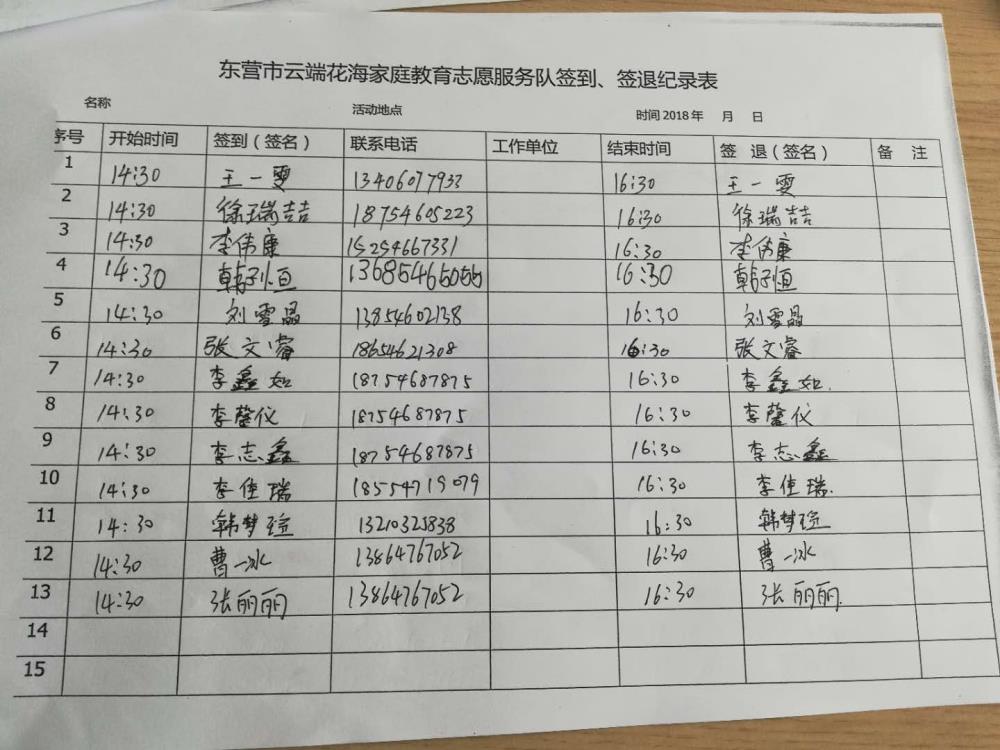 东营市云端花海家庭教育志愿服务队签到、签退纪录表
名称 活动地点 时间 2018 年 月 日
序号 开始时间 签到（签名） 联系电话 工作单位 结束时间 签 退（签名） 备 注
1 14:30 王一雯 13406077933 16:30 王一雯
2 14:30 徐瑞喆 18754605223 16:30 徐瑞喆
3 14:30 李伟康 15254667331 16:30 李伟康
4 14:30 韩子恒 13685465055 16:30 韩子恒
5 14:30 刘雪晶 13854602138 16:30 刘雪晶
6 14:30 张文睿 18654621308 16:30 张文睿
7 14:30 李鑫如 18754687875 16:30 李鑫如.
8 14:30 李馨仪 18754687875 16:30 李馨仪
9 14:30 李志鑫 18754687875 16:30 李志鑫
10 14:30 李佳瑞 18554719079 16:30 李佳瑞.
11 14:30 韩梦瑄 13210325838 16:30 韩梦瑄
12 14:30 曹一冰 13864767052 16:30 曹一冰
13 14:30 张丽丽 13864767052 16:30 张丽丽.
14
15